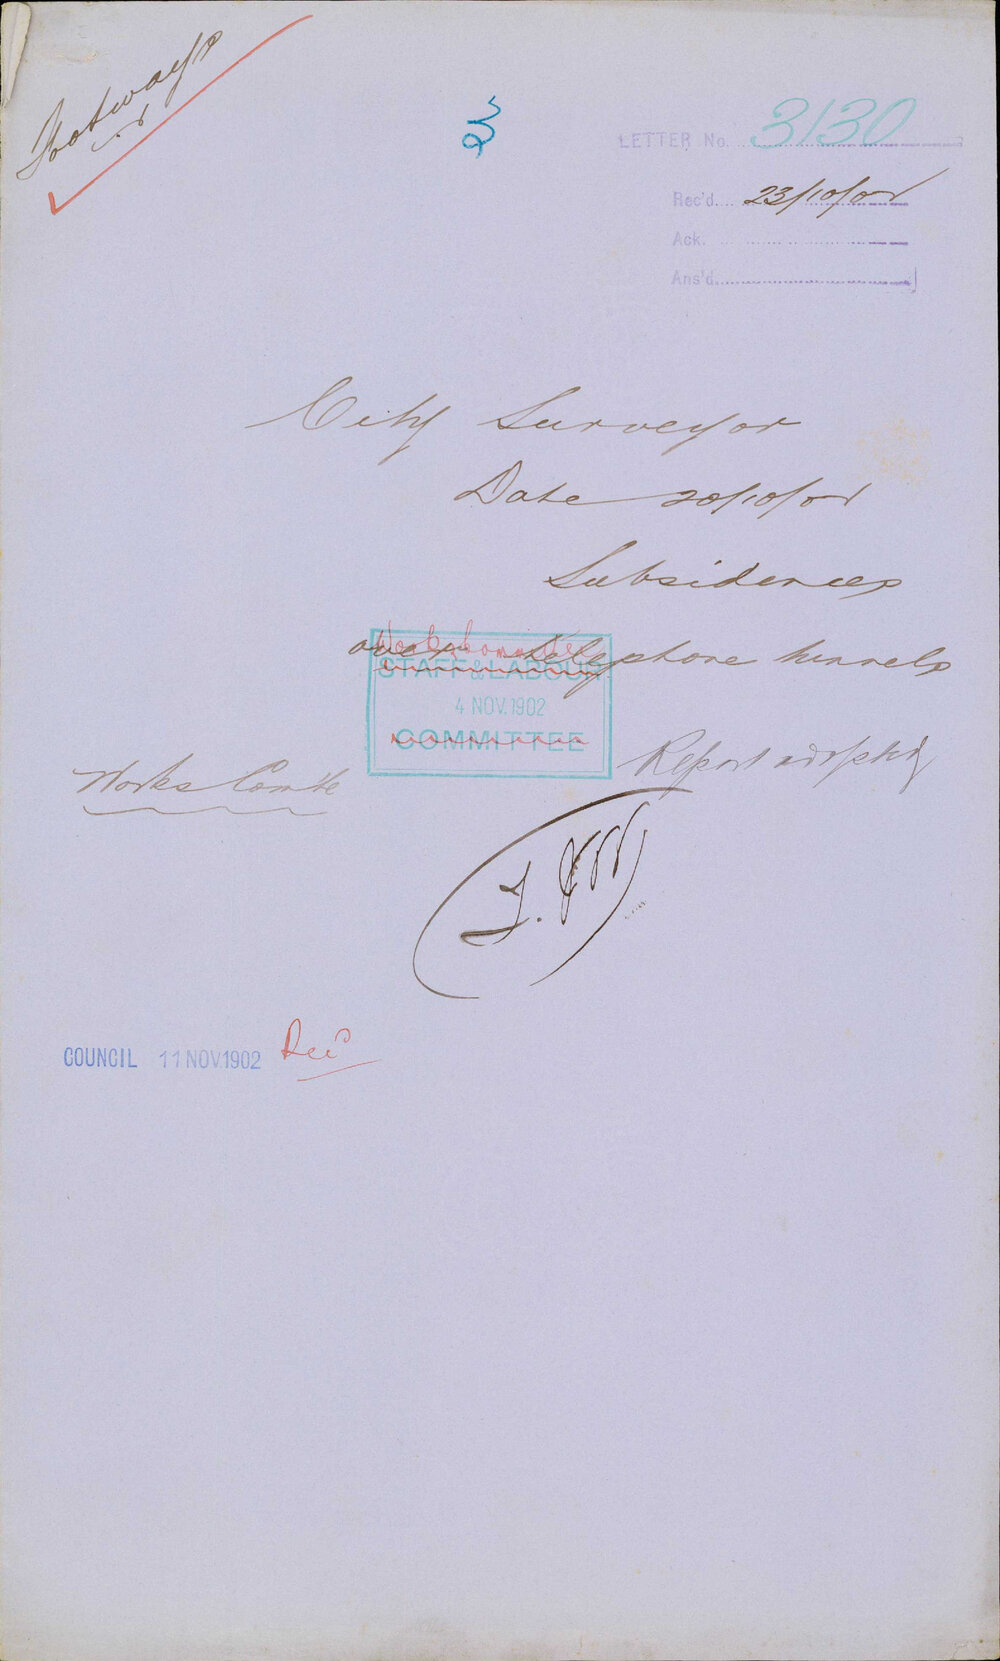 Footways
3
LETTER No. 3130
Rec'd. 23/10/02
Ack.
Ans'd.
City Surveyor
Date 20/10/02
Subsidences
over telephone tunnels
Works Committee
STAFF & LABOUR
4 NOV. 1902
COMMITTEE
Report adopted
Works Comte
COUNCIL 11 NOV. 1902 Recd